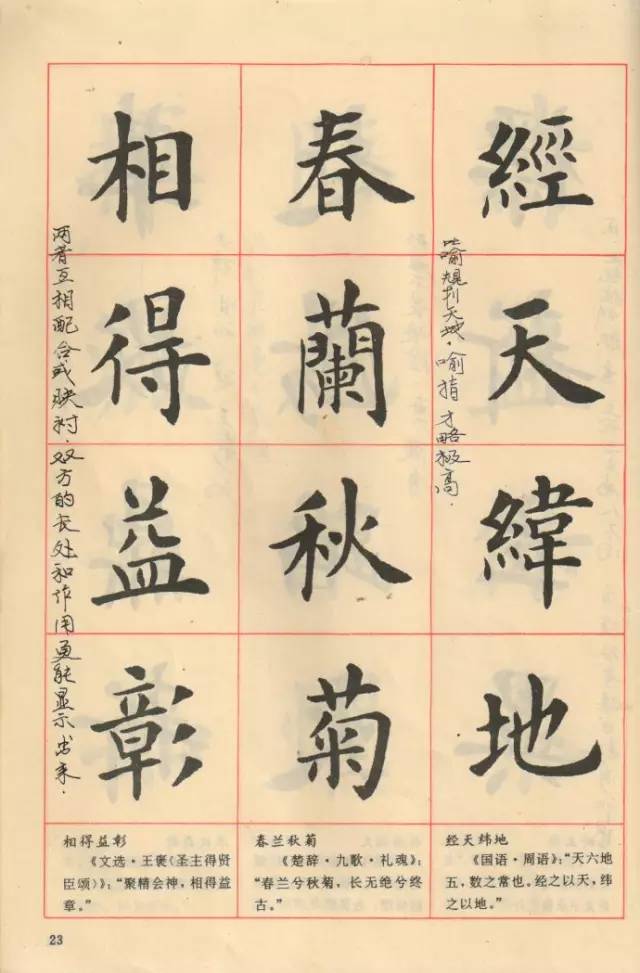 經天緯地
喻规划天地。喻指才略极高。
春蘭秋菊
相得益彰
两者互相配合或映衬。双方的长处和作用更能显示出来。
经天纬地
《国语·周语》:“天六地
五，数之常也。经之以天，纬
之以地。”
春兰秋菊
《楚辞·九歌·礼魂》:
“春兰兮秋菊，长无绝兮终
古。”
相得益彰
《文选·王褒〈圣主得贤
臣颂〉》:“聚精会神，相得益
章。”
23